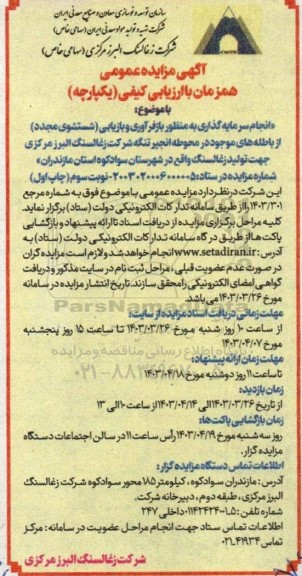 سازمان توسعه و نوسازی معادن و صنایع معدنی ایران
شرکت تهیه و تولید مواد معدنی ایران (سهامی خاص)
شرکت زغالسنگ البرز مرکزی (سهامی خاص)
آگهی مزایده عمومی
همزمان با ارزیابی کیفی (یکپارچه)
با موضوع:
«انجام سرمایه گذاری به منظور بازفرآوری و بازیابی (شستشوی مجدد)
از باطله های موجود در محوطه انجیر تنگه شرکت زغالسنگ البرز مرکزی
جهت تولید زغالسنگ واقع در شهرستان سوادکوه استان مازندران»
شماره مزایده در ستاد: ۲۰۰۳۰۲۰۰۰۶۰۰۰۰۰۵-نوبت سوم (چاپ اول)
این شرکت در نظر دارد مزایده عمومی با موضوع فوق به شماره مرجع
۱۴۰۳/۳۰۱ را از طریق سامانه تدارکات الکترونیکی دولت (ستاد) برگزار نماید.
کلیه مراحل برگزاری مزایده از دریافت اسناد تا ارائه پیشنهاد و بازگشایی
پاکت ها از طریق درگاه سامانه تدارکات الکترونیکی دولت (ستاد) به
آدرس: www.setadiran.ir انجام خواهد شد و لازم است مزایده گران
در صورت عدم عضویت قبلی، مراحل ثبت نام در سایت مذکور و دریافت
گواهی امضای الکترونیکی را محقق سازند. تاریخ انتشار مزایده در سامانه
مورخ ۱۴۰۳/۰۳/۲۶ می باشد.
مهلت زمانی دریافت اسناد مزایده از سایت:
از ساعت ۱۰ روز شنبه مورخ ۱۴۰۳/۰۳/۲۶ تا ساعت ۱۵ روز پنجشنبه
مورخ ۱۴۰۳/۰۴/۰۷
مهلت زمان ارائه پیشنهاد:
تا ساعت ۱۱ روز دوشنبه مورخ ۱۴۰۳/۰۴/۱۸
زمان بازدید:
از تاریخ ۱۴۰۳/۰۳/۲۶ الی ۱۴۰۳/۰۴/۱۴ از ساعت ۱۰ الی ۱۳
زمان بازگشایی پاکت ها:
روز سه شنبه مورخ ۱۴۰۳/۰۴/۱۹ رأس ساعت ۱۱ در سالن اجتماعات دستگاه
مزایده گزار.
اطلاعات تماس دستگاه مزایده گزار:
آدرس: مازندران سوادکوه، کیلومتر ۱۸۵ محور سوادکوه شرکت زغالسنگ
البرز مرکزی، طبقه دوم، دبیرخانه شرکت.
شماره تلفن: ۵-۰۱۱۴۲۴۲۴۰۰۱ داخلی ۲۴۷
اطلاعات تماس ستاد جهت انجام مراحل عضویت در سامانه: مرکز
تماس ۰۲۱۴۱۹۳۴
شرکت زغالسنگ البرز مرکزی